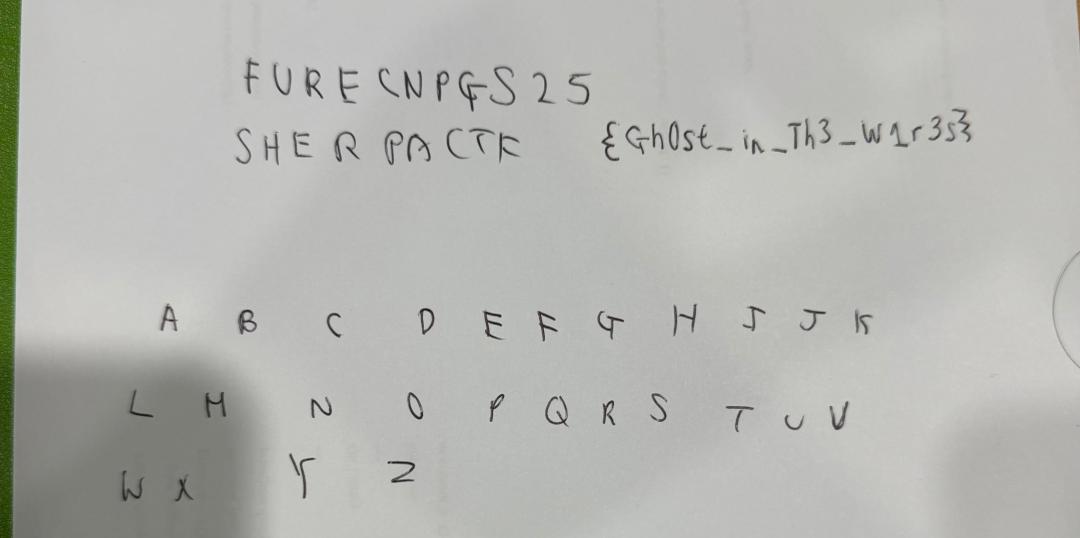 FURECNPGS25
SHERPACTF {Gh0st_in_Th3_W1r3s}
A B C D E F G H I J K
L M N O P Q R S T U V
W X Y Z